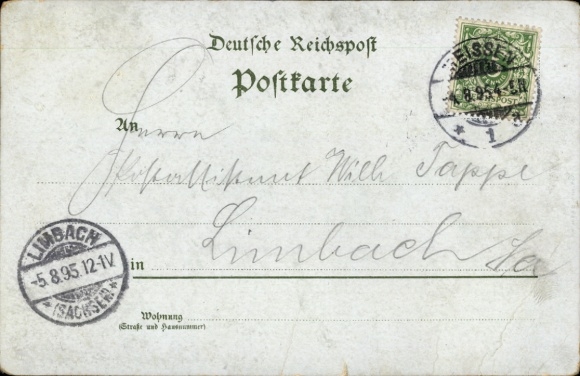 Deutsche Reichspost
Postkarte
MEISSEN
4.8.95.4-5.N
* 1
An Herrn
Postassistent Willi Tappe
Limbach Sa
in
LIMBACH
-5.8.95.12-1V.
*(SACHSEN)*
Wohnung
(Straße und Hausnummer)